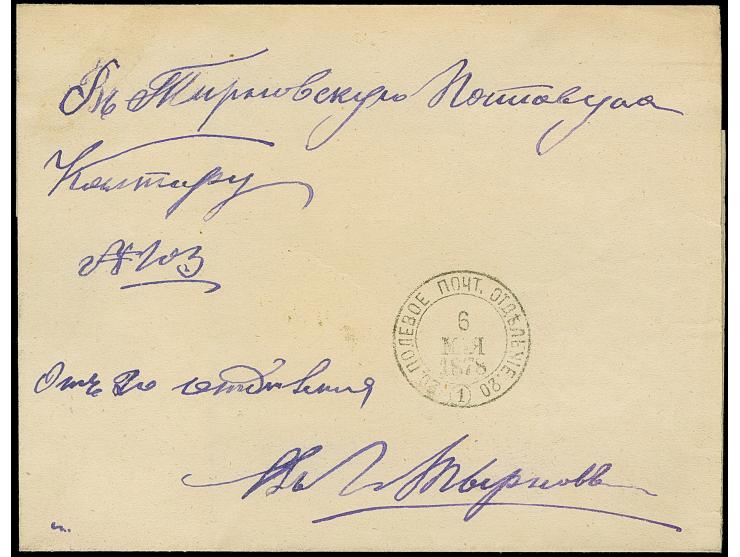 Въ Тырновскую Почтовую
Контору
№ 103
ПОЛЕВОЕ ПОЧТ. ОТДѢЛЕНІЕ 20
6
МАЯ
1878
(1)
Отъ 20 отдѣленія
Въ г. Тырновѣ